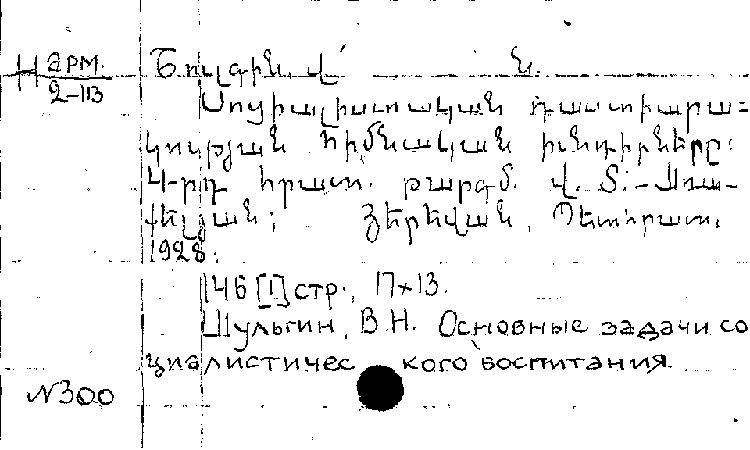 Н арм.
2-113
Շուլգին, Վ. Ն.
Սոցիալիստական դաստիարա-
կության հիմնական խնդիրները:
4-րդ հրատ. թարգմ. Վ. Տ. - Առա-
քելյան; Յերեվան, Պետհրատ,
1928:
146 [1] стр., 17×13.
Шульгин, В.Н. Основные задачи со
циалистичес кого воспитания.
N300